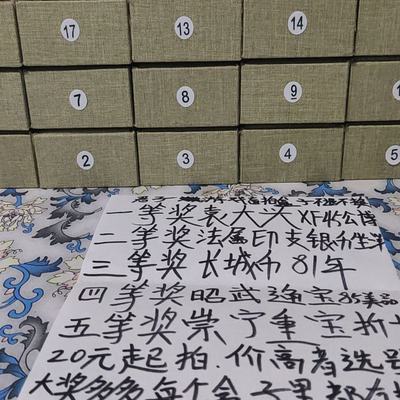 17 13 14
7 8 9
2 3 4 5
一等奖袁大头XF45公博
二等奖法属印支银币坐
三等奖长城币81年
四等奖昭武通宝85美品
五等奖崇宁重宝折
20元起拍.价高者选号
大奖多多每个盒子里都有